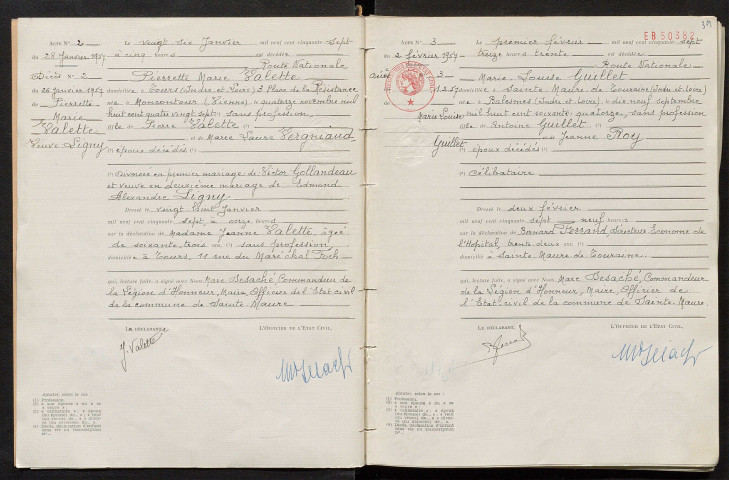 Acte N° 2
du 28 Janvier 1957
Décès N° 2
du 26 janvier 1957
de Pierrette
Marie
Valette
Veuve Ligny
Le vingt six Janvier mil neuf cent cinquante sept
à cinq heures est décédée
Route Nationale
Pierrette Marie Valette
domiciliée à Tours (Indre et Loire) 3 Place de la Résistance
née à Moncontour (Vienne) le quatorze novembre mil
huit cent quatre vingt sept, sans profession,
fille de Pierre Valette
et de Marie Laure Vergniaud
époux décédés
divorcée en premier mariage de Victor Gollandeau
et veuve en deuxième mariage de Edmond
Alexandre Ligny
Dressé le vingt huit Janvier
mil neuf cent cinquante sept, à onze heures
sur la déclaration de Madame Jeanne Valette, âgée
de soixante trois ans sans profession,
domiciliée à Tours, 11 rue du Maréchal Foch
qui, lecture faite, a signé avec Nous Marc Desaché, Commandeur de
la Légion d'Honneur, Maire, Officier de l'Etat civil
de la commune de Sainte Maure
LE DÉCLARANT, L'OFFICIER DE L'ETAT CIVIL,
J. Valette
Ajouter, selon le cas :
(1) Profession.
39
EB 50382
Acte N° 3
du 2 février 1957
Marie Louise
Guillet
Le premier février mil neuf cent cinquante sept
treize heures trente est décédée
Route Nationale
Marie Louise Guillet
domiciliée à Sainte Maure de Touraine (Indre et Loire)
née à Balesmes (Indre et Loire) le dix neuf septembre
mil huit cent soixante quatorze, sans profession
fille de Antoine Guillet
et de Jeanne Roy
époux décédés
célibataire
Dressé le deux février
mil neuf cent cinquante sept neuf heures
sur la déclaration de Bernard directeur Econome de
l'Hopital, trente deux ans
domicilié à Sainte Maure de Touraine.
qui, lecture faite, a signé avec Nous, Marc Desaché, Commandeur
de la Légion d'Honneur, Maire, Officier de
l'Etat civil de la commune de Sainte Maure.
LE DÉCLARANT, L'OFFICIER DE L'ETAT CIVIL,
Ajouter, selon le cas :
(1) Profession.